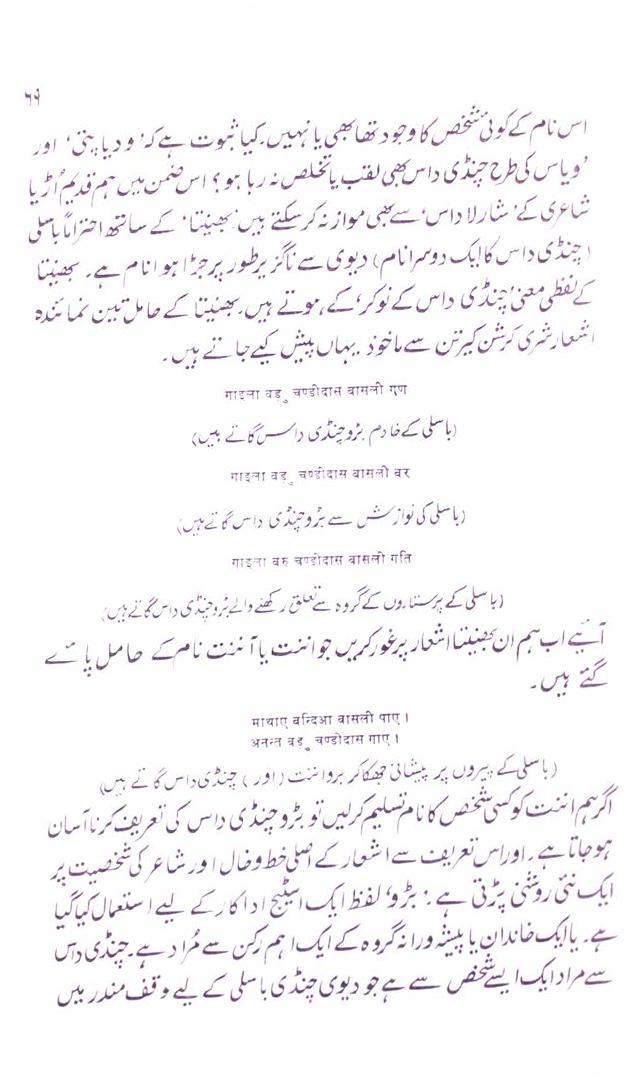 ۶۹
اس نام کے کوئی شخص کا وجود تھا بھی یا نہیں۔ کیا ثبوت ہے کہ ’ودیاپتی‘ اور
’ویاس کی طرح چنڈی داس بھی لقب یا تخلص نہ رہا ہو؟ اس ضمن میں ہم قدیم اُڑیا
شاعری کے ’شارلا داس‘ سے بھی موازنہ کر سکتے ہیں۔ ’بھنیتا‘ کے ساتھ احتراماً باسلی
(چنڈی داس کا ایک دوسرا نام) دیوی سے ناگزیر طور پر جڑا ہوا نام ہے۔ بھنیتا
کے لفظی معنی ’چنڈی داس کے نوکر‘ کے ہوتے ہیں۔ بھنیتا کے حامل تین نمائندہ
اشعار شری کرشن کیرتن سے ماخوذ یہاں پیش کیے جاتے ہیں۔
गाइला बड़ु चण्डीदास बासली गण
(باسلی کے خادم بڑو چنڈی داس گاتے ہیں)
गाइला बड़ु चण्डीदास बासली बर
(باسلی کی نوازش سے بڑو چنڈی داس گاتے ہیں)
गाइला बरु चण्डीदास बासली गति
(باسلی کے پرستاروں کے گروہ سے تعلق رکھنے والے بڑو چنڈی داس گاتے ہیں)
آئیے اب ہم ان بھنیتا اشعار پر غور کریں جو اننت یا آننت نام کے حامل پائے
گئے ہیں۔
माथाए बन्दिआ बासली पाए ।
अनन्त बड़ु चण्डीदास गाए ।
(باسلی کے پیروں پر پیشانی جھکا کر بڑو اننت (اور) چنڈی داس گاتے ہیں)
اگر ہم اننت کو کسی شخص کا نام تسلیم کرلیں تو بڑو چنڈی داس کی تعریف کرنا آسان
ہو جاتا ہے۔ اور اس تعریف سے اشعار کے اصلی خط و خال اور شاعر کی شخصیت پر
ایک نئی روشنی پڑتی ہے۔ ’بڑو‘ لفظ ایک اسٹیج اداکار کے لیے استعمال کیا گیا
ہے۔ یا ایک خاندان یا پیشہ ورانہ گروہ کے ایک اہم رکن سے مُراد ہے۔ چنڈی داس
سے مراد ایک ایسے شخص سے ہے جو دیوی چنڈی باسلی کے لیے وقف مندر میں